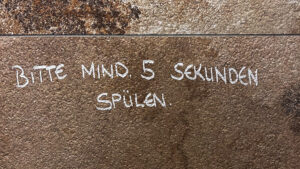 BITTE MIND. 5 SEKUNDEN
SPÜLEN.